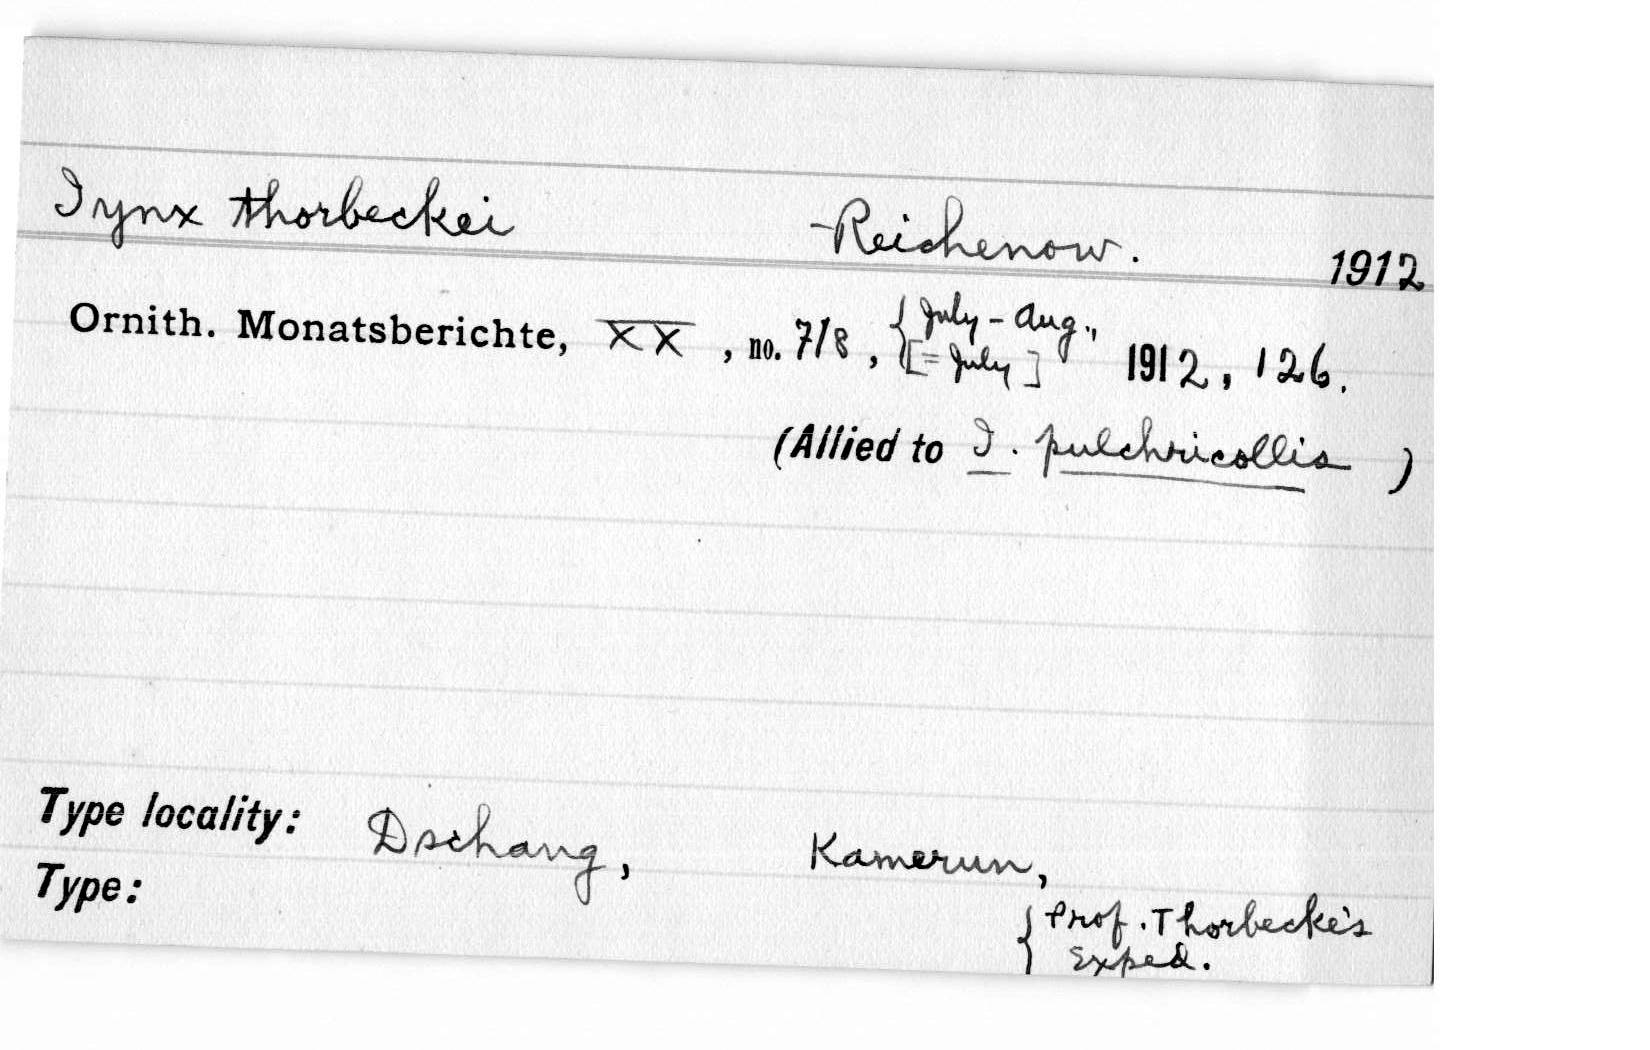 Iynx thorbeckei Reichenow. 1912
Ornith. Monatsberichte, XX, no. 7/8, {July - Aug., 1912, 126.
[= July]
(Allied to I. pulchricollis)
Type locality: Dschang, Kamerun,
Type: {Prof. Thorbecke's
Exped.